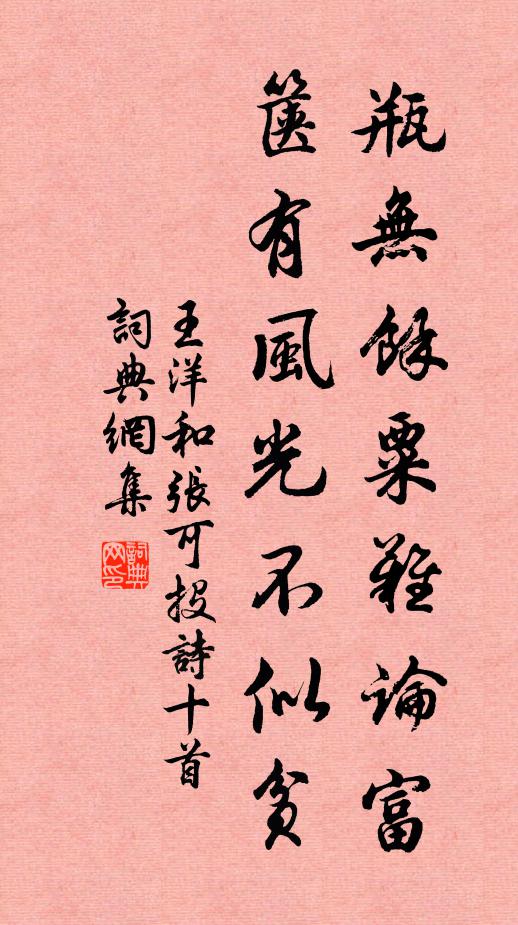 瓶無餘粟難論富
篋有風光不似貧
王洋和張可投詩十首
詞典網集
詞典網印